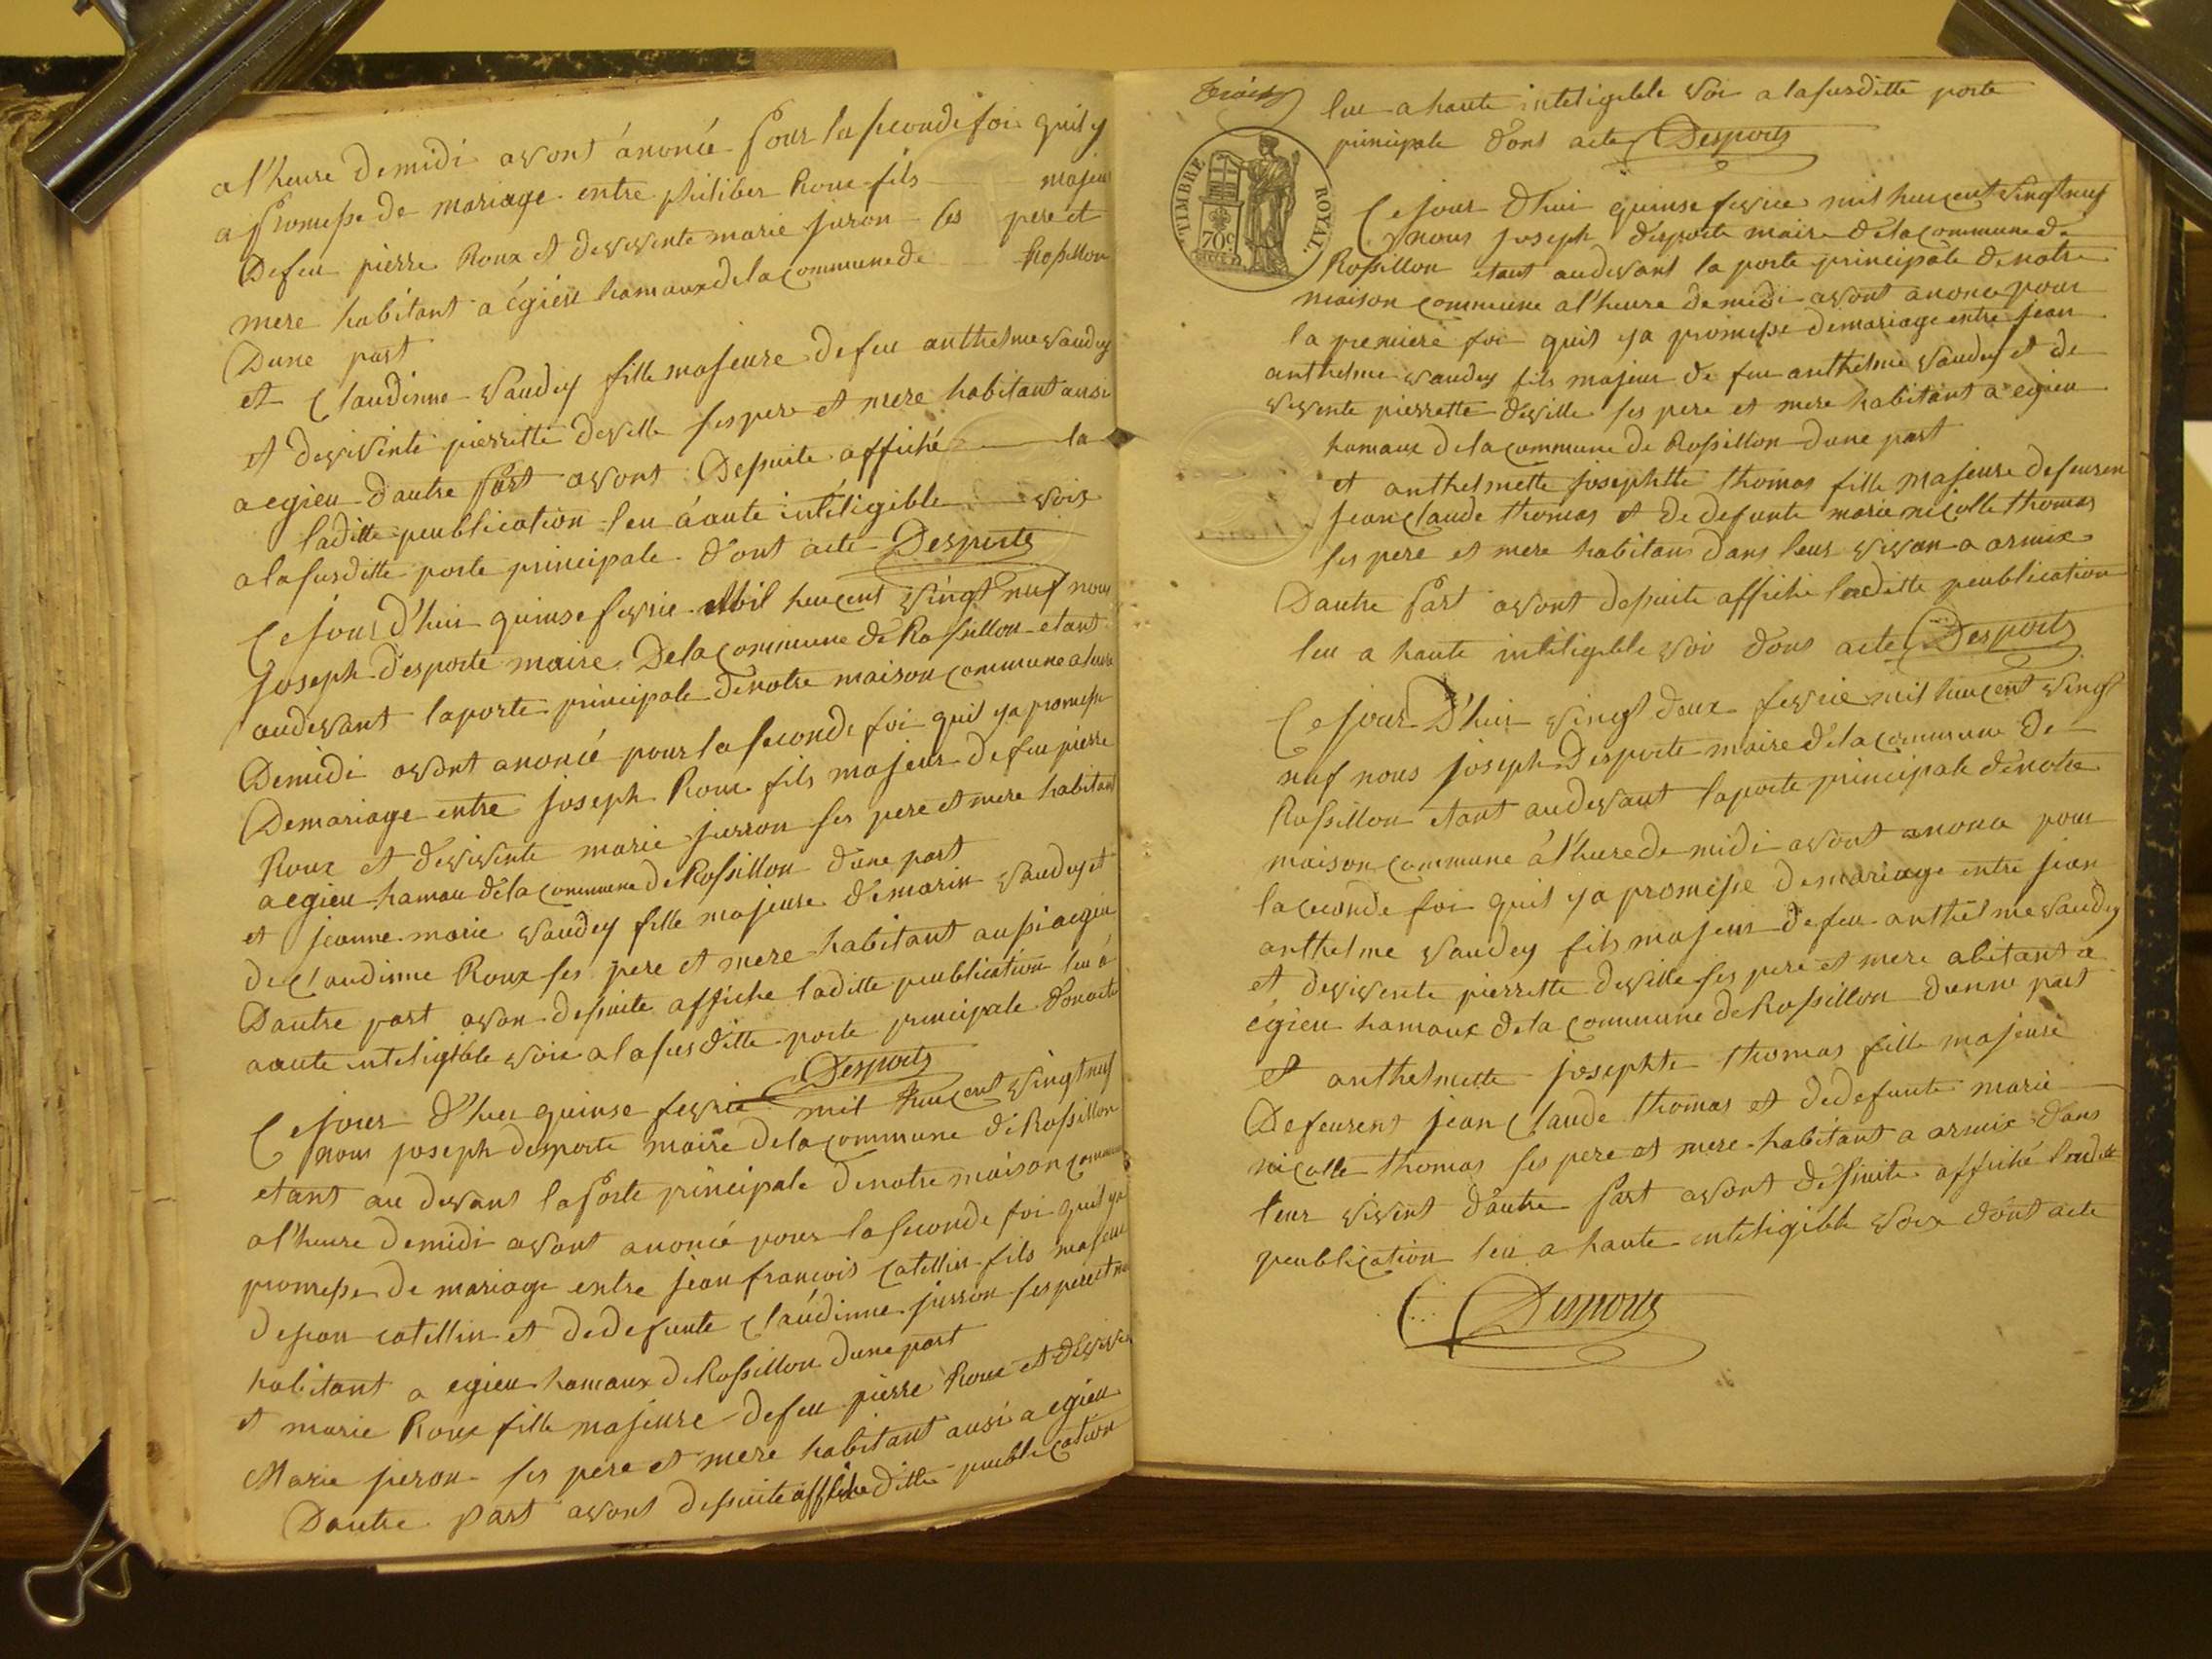 a l'heure de midi avont ánoncé pour la seconde foi quil y
a promesse de mariage entre philiber Roux fils majeur
Defeu pierre Roux et devivente marie juron ses pere et
mere habitant a égieu hamaux de la commune de Rossillon
Dune part
et Claudinne Vaudey fille majeure de feu anthelme Vaudey
et devivente pierrette deville ses pere et mere habitant ausi
a egieu dautre part avont Desuite affiché la
laditte peublication leu á aute intéligible voix
a la susditte porte principale dont acte Desporte
Ce jour d'hui quinse fevrie Mil heucent vingt neuf nous
joseph desporte maire De la commune de Rossillon etant
audevant la porte principale denotre maison commune a lheure
Demidi avont anoncé pour la seconde foi quil ya promesse
Demariage entre joseph Roux fils majeur defeu pierre
Roux et devivente marie jurron ses pere et mere habitant
a egieu hamau de la commune de Rossillon dune part
et jeanne marie Vaudey fille majeure demarin Vaudey et
de Claudinne Roux ses pere et mere habitant aussi aegieu
Dautre part avon desuite affiche laditte peublication leu á
aaute inteligible voix a la susditte porte principale donacte
Desports
Ce jour d'hui quinse fevrie mil heucent vingt neuf
nous joseph desporte maire de la commune de Rossillon
etant au devant la porte principale denotre maison commune
a l'heure demidi avont anoncé pour la seconde foi quil ya
promesse de mariage entre jean francois catellin fils majeur
dejean catellin et dedefunte claudinne jurron ses pere et me
habitant a egieu hamaux de Rossillon dune part
et marie Roux fille majeure defeu pierre Roux et devive
Marie jeron ses pere et mere habitant ausi a egieu
Dautre part avont desuite affiche ditte peublication
leu a haute inteligible voi a la susditte porte
principale dont acte Desports
TIMBRE ROYAL
70c
Ce jour d'hui quinse fevrie mil heucent vingt neuf
nous joseph desporte maire de la commune de
Rossillon etant audevant la porte principale denotre
maison commune a l'heure de midi avont anoncé pour
la premiere foi quil ya promesse demariage entre jean
anthelme vaudey fils majeur de feu anthelme vaudey et de
vivente pierrette deville ses pere et mere habitant a egieu
hamaux de la commune de Rossillon dune part
et anthelmette josephtte thomas fille majeure defeuren
jean claude thomas et de defunte marie nicolle thomas
ses pere et mere habitans dans leur vivan a armix
Dautre part avont desuite affiché laditte peublication
leu a haute intiligible voi dont acte Desports
Ce jour D'hui vingt deux fevrie mil heucent vingt
neuf nous joseph Desporte maire de la commune de
Rossillon etant audevant la porte principale denotre
maison commune á l'heure de midi avont anoncé pour
la ceconde foi quil ya promesse demariage entre jean
anthelme vaudey fils majeur defeu anthelme vaudey
et devivente pierrette deville ses pere et mere abitant a
égieu hamaux de la commune de Rossillon dunne part
et anthelmette josephte thomas fille majeure
Defeurent jean Claude thomas et dedefunte marie
nicolle thomas ses pere et mere habitant a armix dans
leur vivent dautre part avont desuite affiché laditte
peublication leu a haute inteligible voix dont acte
Desports